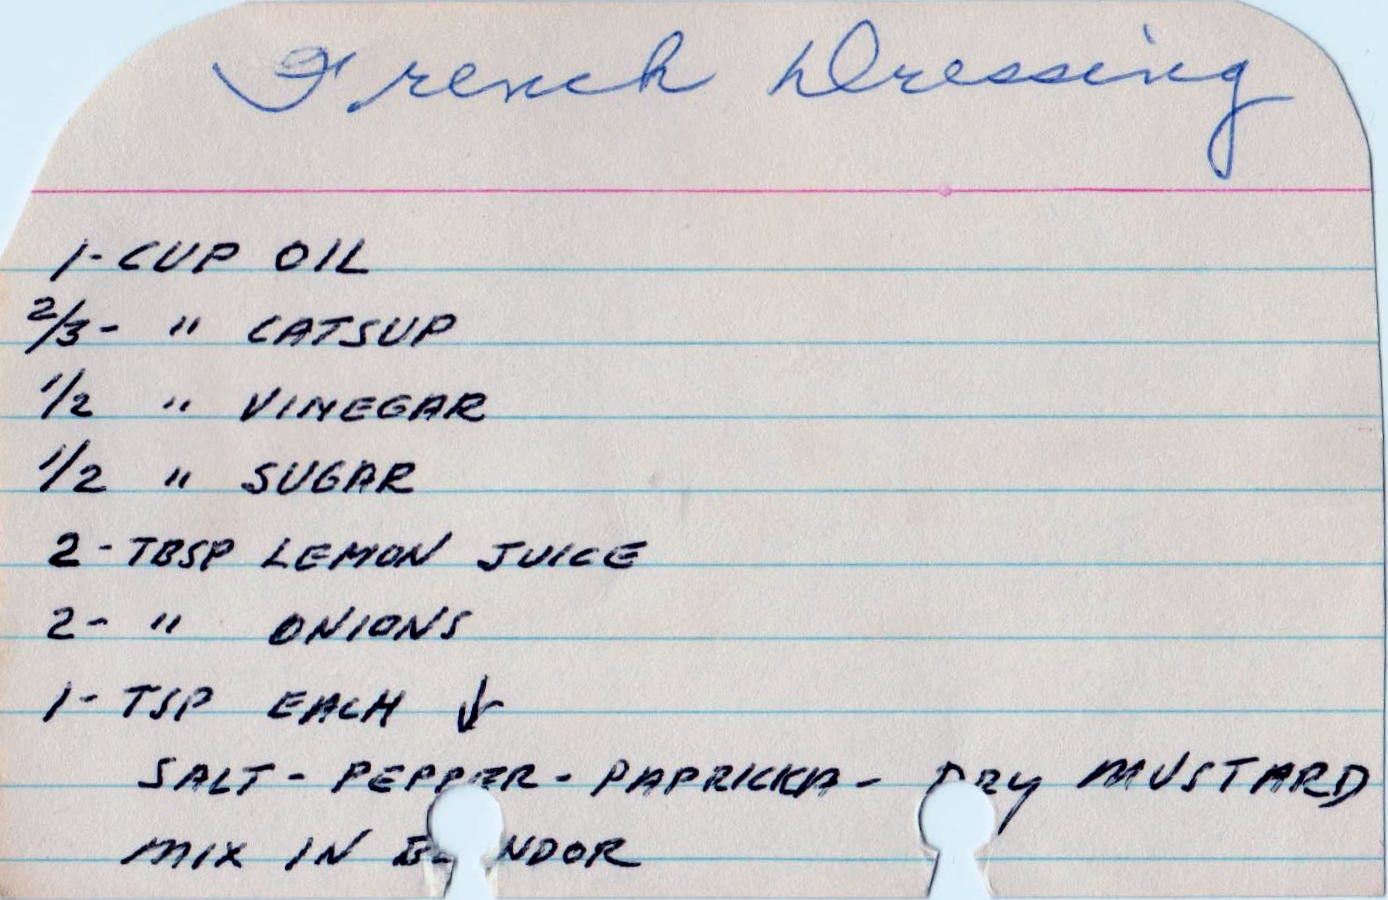 French Dressing
1- CUP OIL
2/3- " CATSUP
1/2 " VINEGAR
1/2 " SUGAR
2- TBSP LEMON JUICE
2- " ONIONS
1- TSP EACH ↓
SALT - PEPPER - PAPRICKA - DRY MUSTARD
MIX IN BLENDOR